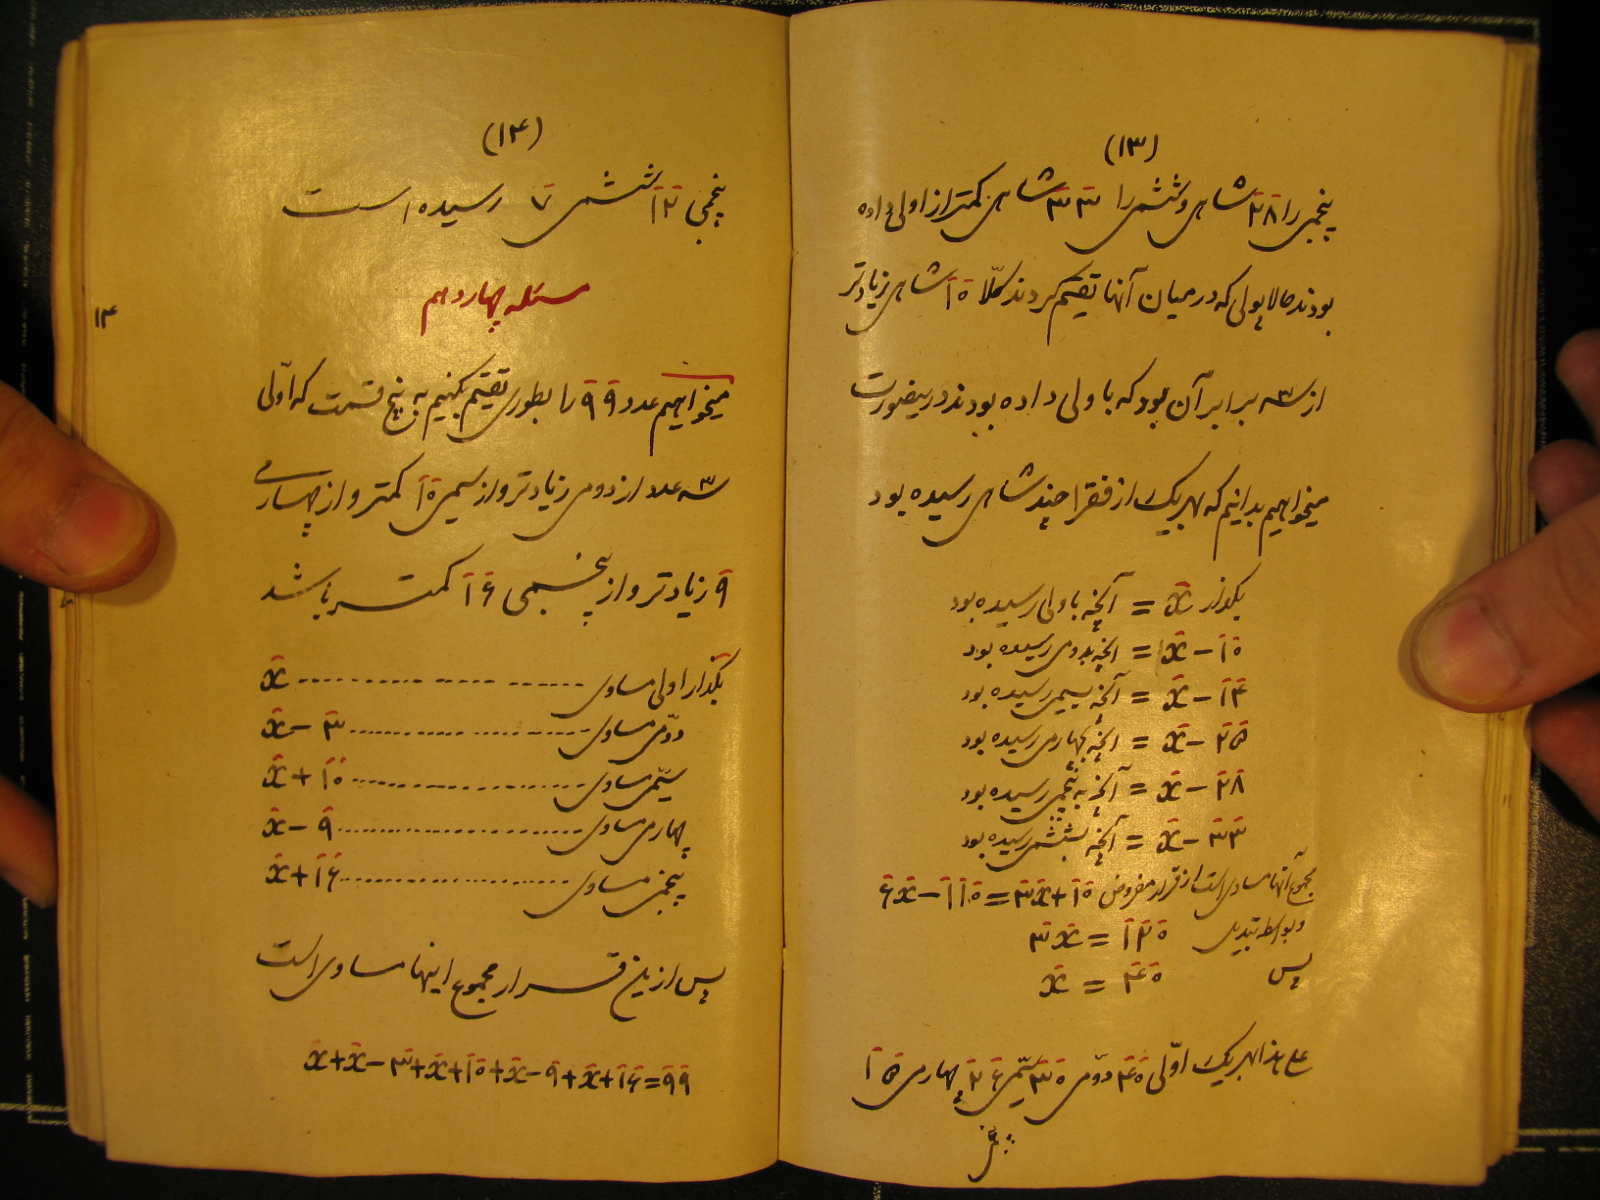 (۱۳)
پنجمی را ۲۸ شاهی و ششمی را ۳۳ شاهی کمتر از اولی داده
بودند حالا پولی که در میان آنها تقسیم کردند کلّا ۱۰ شاهی زیادتر
از سه برابر آن بود که باولی داده بودند در ینصورت
میخواهیم بدانیم که بهر یک از فقرا چند شاهی رسیده بود
بگذار x = آنچه باولی رسیده بود
x − ۱۰ = آنچه بدومی رسیده بود
x − ۱۴ = آنچه بسیمی رسیده بود
x − ۲۵ = آنچه بچهارمی رسیده بود
x − ۲۸ = آنچه به پنجمی رسیده بود
x − ۳۳ = آنچه بششمی رسیده بود
مجموع آنها مساوی است از قرار مفروض ۶x − ۱۱۰ = ۳x + ۱۰
و بواسطه تبدیل ۳x = ۱۲۰
پس x = ۴۰
علیهذا بهر یک اوّلی ۴۰ دوّمی ۳۰ سیّمی ۲۶ چهارمی ۱۵
(۱۴)
پنجمی ۱۲ ششمی ۷ رسیده است
مسئله چهاردهم
۱۴
میخواهیم عدد ۹۹ را بطوری تقسیم بکنیم به پنج قسمت که اوّلی
سه عدد از دومی زیادتر و از سیمی ۱۰ کمتر و از چهارمی
۹ زیادتر و از پنجمی ۱۶ کمتر باشد
بگذار اولی مساوی ........ x
دوّمی مساوی ........ x − ۳
سیّمی مساوی ........ x + ۱۰
چهارمی مساوی ........ x − ۹
پنجمی مساوی ........ x + ۱۶
پس از ین قرار مجموع اینها مساوی است
x + x − ۳ + x + ۱۰ + x − ۹ + x + ۱۶ = ۹۹